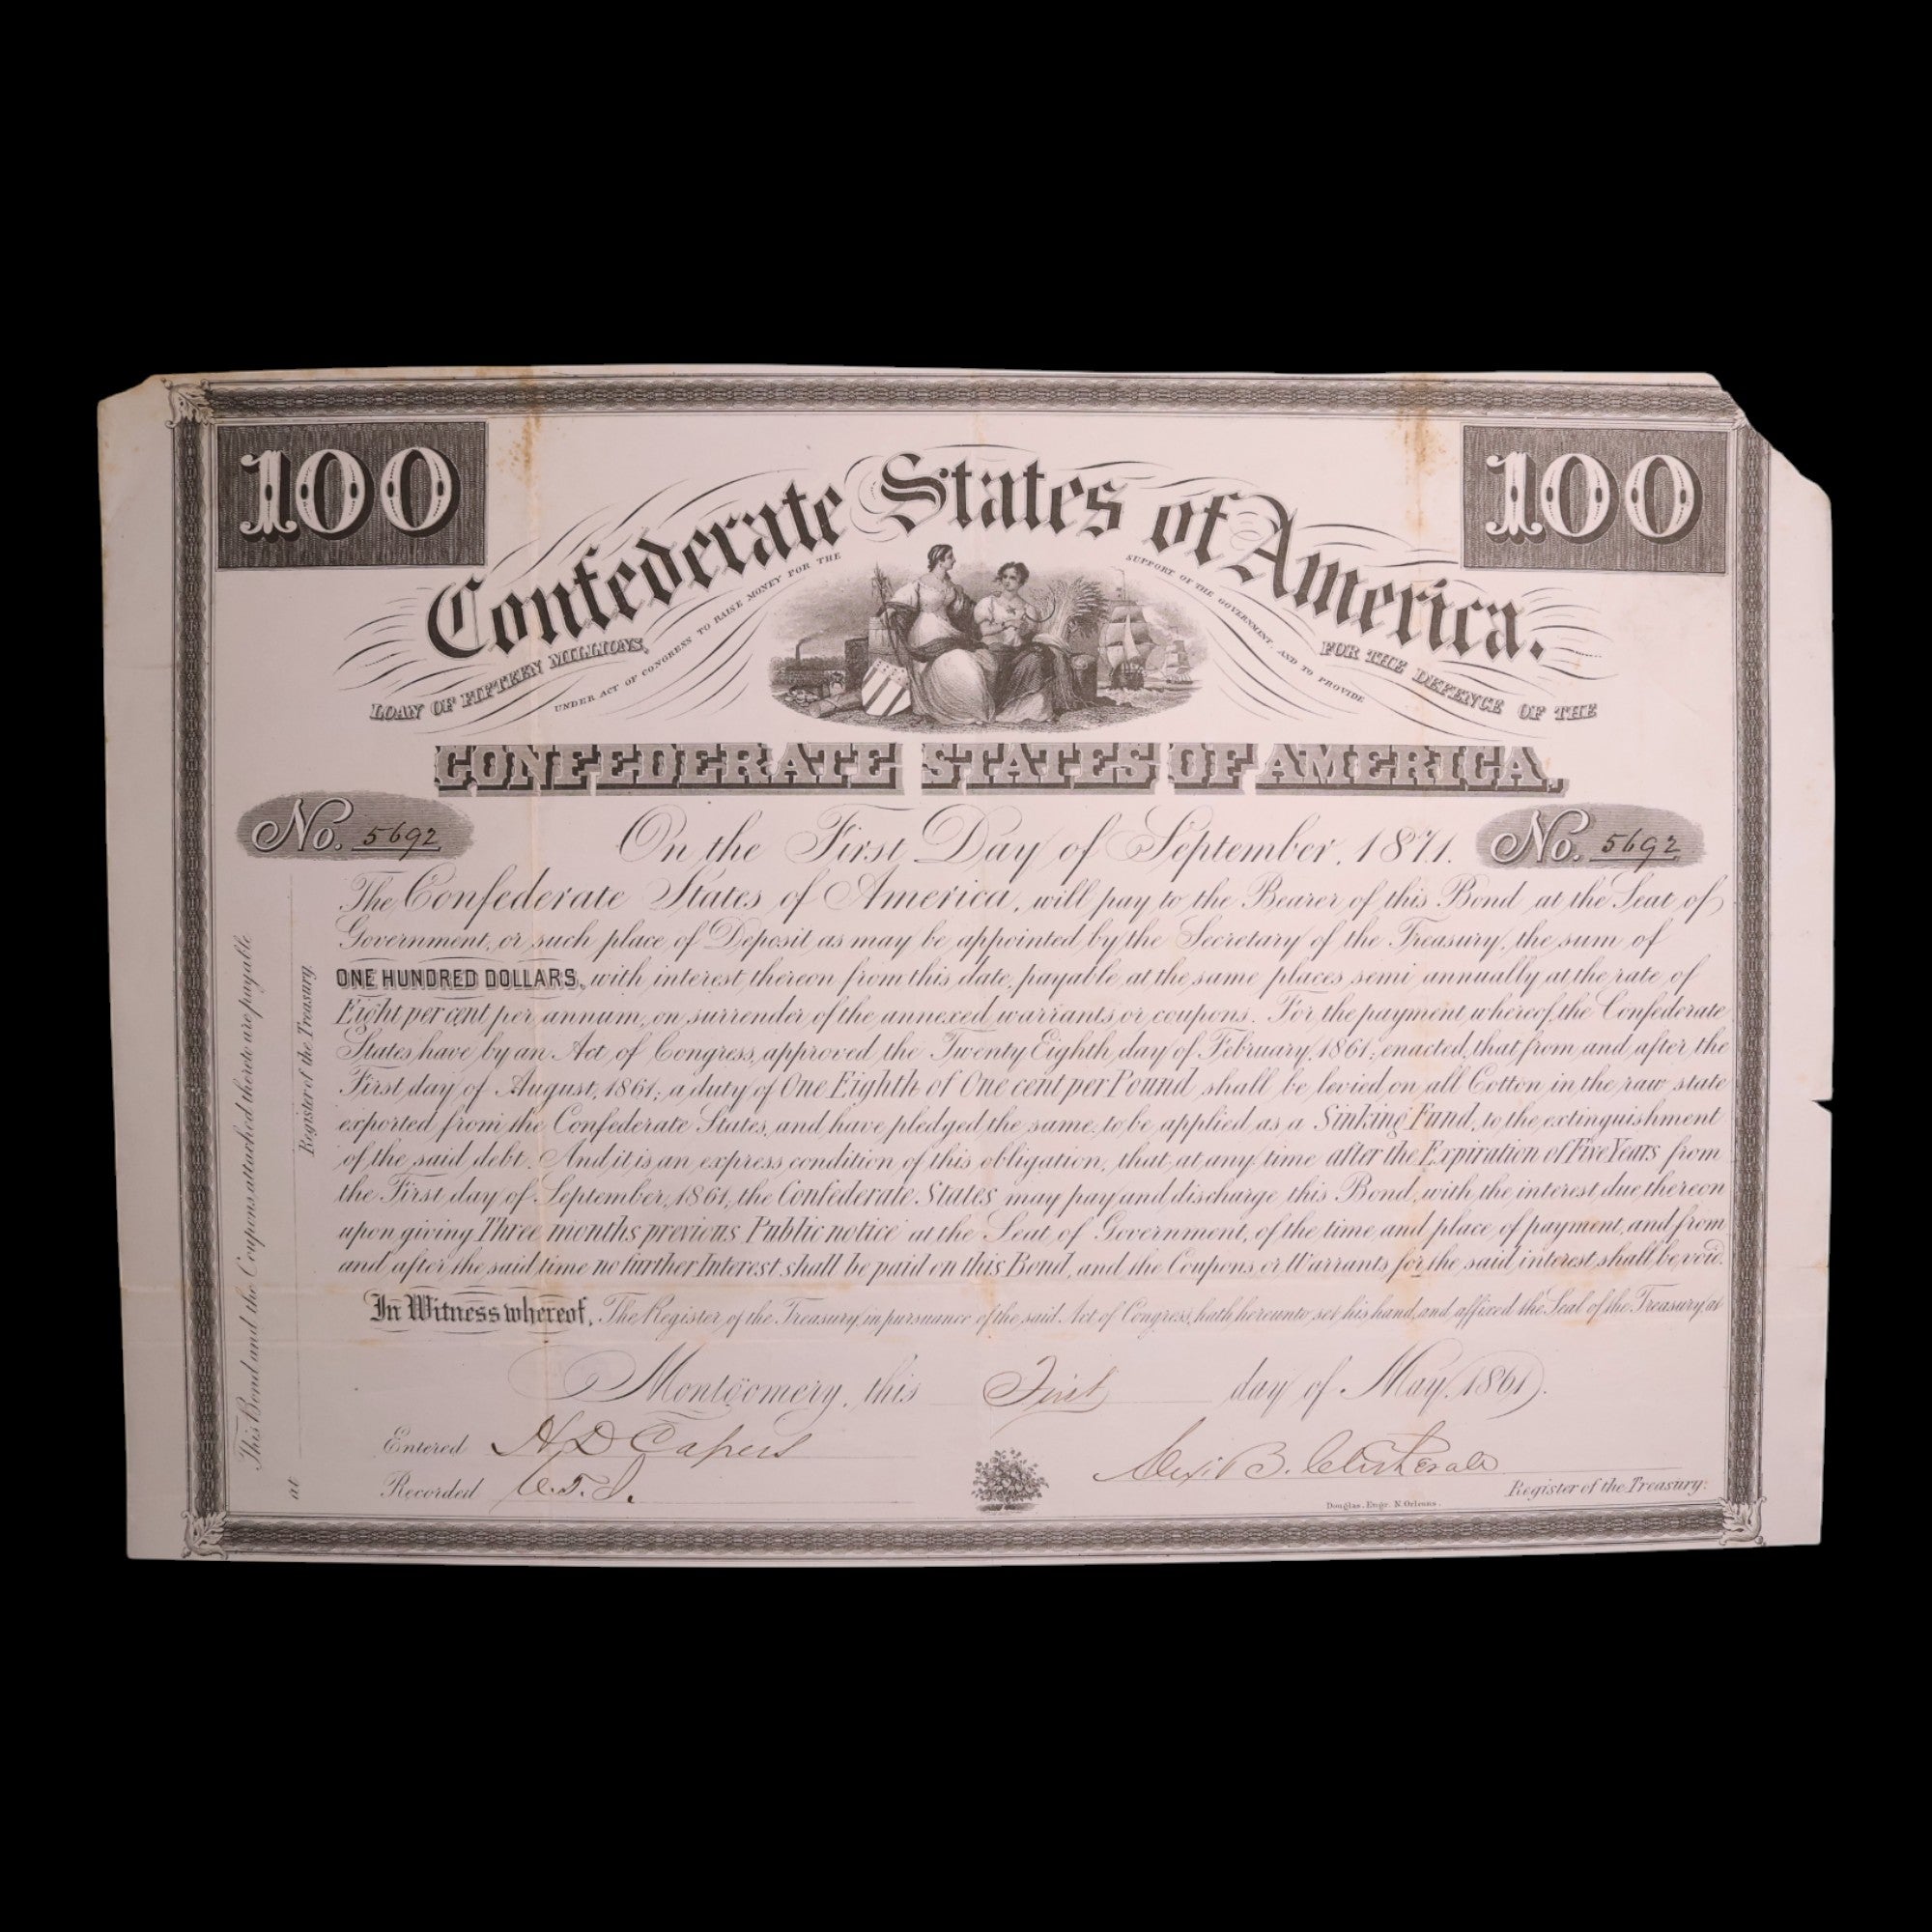 100
100
Confederate States of America.
LOAN OF FIFTEEN MILLIONS,
UNDER ACT OF CONGRESS TO RAISE MONEY FOR THE
SUPPORT OF THE GOVERNMENT, AND TO PROVIDE
FOR THE DEFENCE OF THE
CONFEDERATE STATES OF AMERICA,
No. 5692
On the First Day of September, 1871.
No. 5692
The Confederate States of America, will pay to the Bearer of this Bond at the Seat of
Government, or such place of Deposit as may be appointed by the Secretary of the Treasury, the sum of
ONE HUNDRED DOLLARS, with interest thereon from this date, payable at the same places semi annually at the rate of
Eight per cent per annum, on surrender of the annexed warrants or coupons. For the payment whereof, the Confederate
States have by an Act of Congress, approved the Twenty Eighth day of February, 1861; enacted, that from and after the
First day of August, 1861; a duty of One Eighth of One cent per Pound shall be levied, on all Cotton in the raw state
exported from the Confederate States, and have pledged the same, to be applied as a Sinking Fund, to the extinguishment
of the said debt. And it is an express condition of this obligation, that at any time after the Expiration of Five Years from
the First day of September, 1861, the Confederate States may pay and discharge this Bond, with the interest due thereon
upon giving Three months previous Public notice at the Seat of Government, of the time and place of payment, and from
and after the said time no further Interest shall be paid on this Bond, and the Coupons or Warrants for the said interest shall be void.
In Witness whereof, The Register of the Treasury, in pursuance of the said Act of Congress, hath hereunto set his hand, and affixed the Seal of the Treasury, at
Montgomery, this First day of May, 1861.
Entered H D Capers
Recorded C.T.J.
Alex: B. Clitherall
Register of the Treasury.
Douglas. Engr. N. Orleans.
This Bond and the Coupons attached thereto are payable
at
Register of the Treasury.